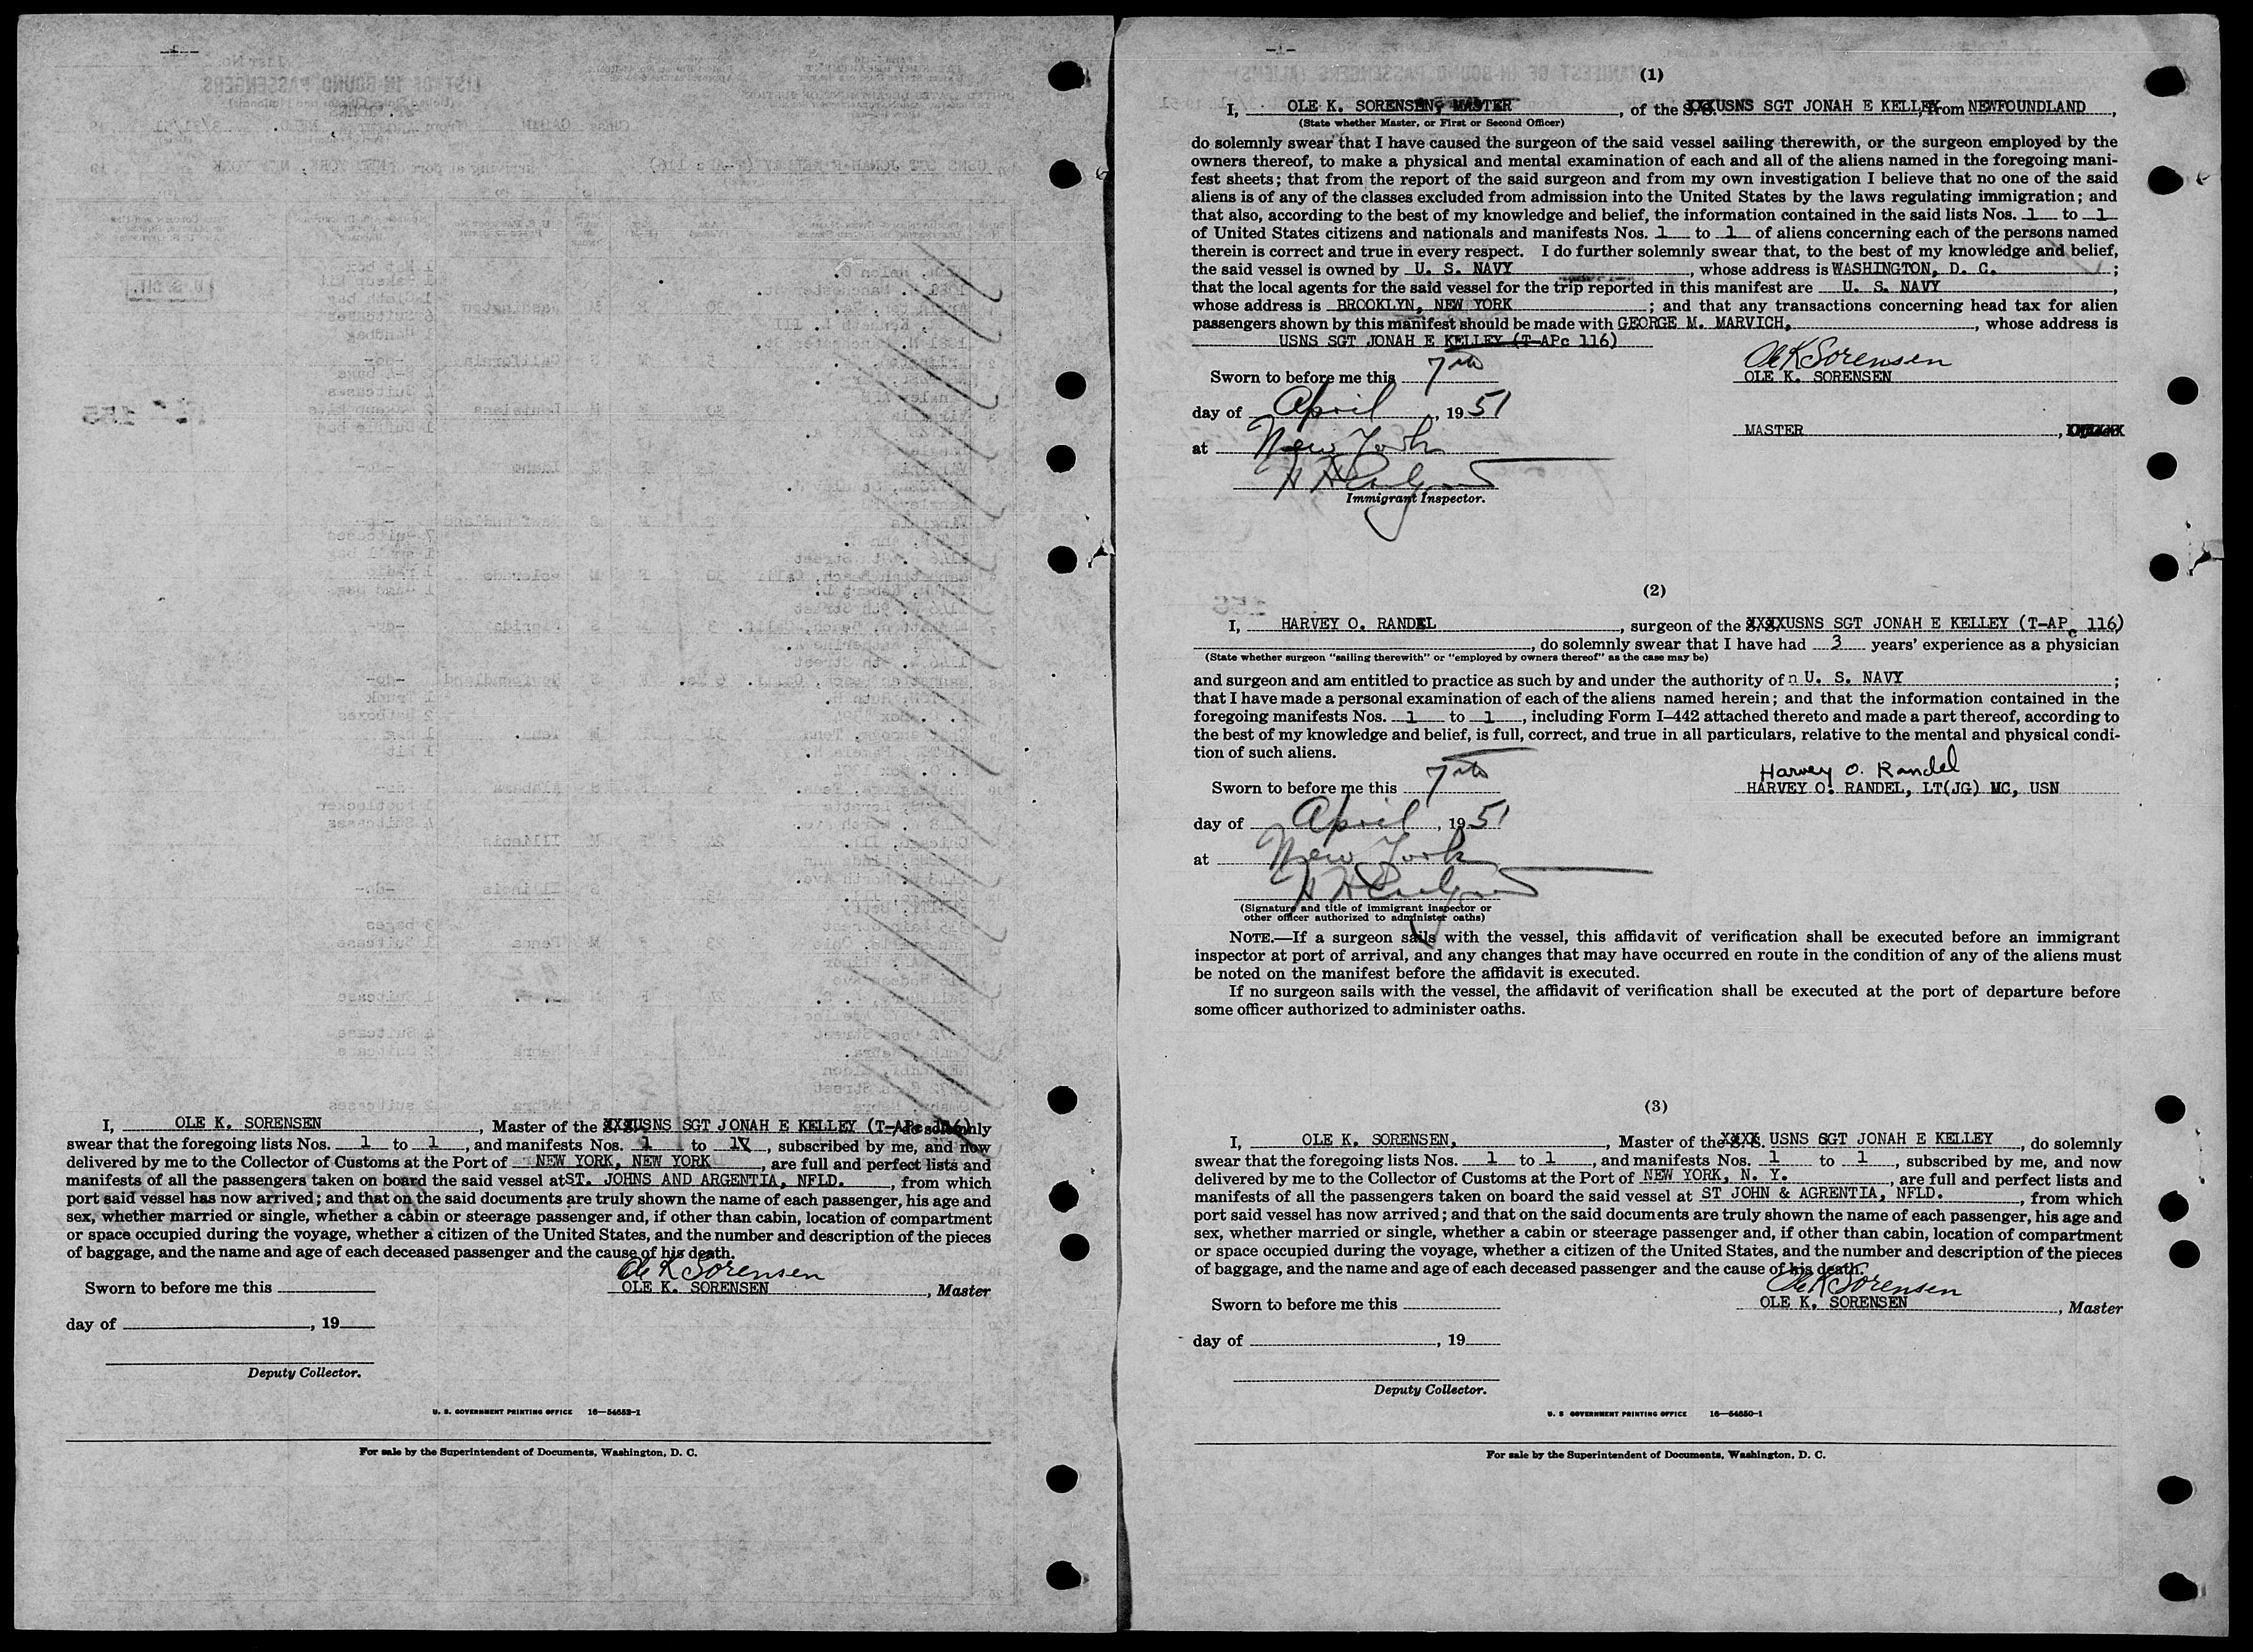 I, OLE K. SORENSEN, Master of the XXXUSNS SGT JONAH E KELLEY (T-APc 116) do solemnly
swear that the foregoing lists Nos. 1 to 1, and manifests Nos. 1 to 1, subscribed by me, and now
delivered by me to the Collector of Customs at the Port of NEW YORK, NEW YORK, are full and perfect lists and
manifests of all the passengers taken on board the said vessel at ST. JOHNS AND ARGENTIA, NFLD., from which
port said vessel has now arrived; and that on the said documents are truly shown the name of each passenger, his age and
sex, whether married or single, whether a cabin or steerage passenger and, if other than cabin, location of compartment
or space occupied during the voyage, whether a citizen of the United States, and the number and description of the pieces
of baggage, and the name and age of each deceased passenger and the cause of his death.
Ole K Sorensen
Sworn to before me this OLE K. SORENSEN, Master
day of , 19
Deputy Collector.
U. S. GOVERNMENT PRINTING OFFICE 16—54652-1
For sale by the Superintendent of Documents, Washington, D. C.
-1-
(1)
I, OLE K. SORENSEN, MASTER, of the S. S. USNS SGT JONAH E KELLEY, from NEWFOUNDLAND,
(State whether Master, or First or Second Officer)
do solemnly swear that I have caused the surgeon of the said vessel sailing therewith, or the surgeon employed by the
owners thereof, to make a physical and mental examination of each and all of the aliens named in the foregoing mani-
fest sheets; that from the report of the said surgeon and from my own investigation I believe that no one of the said
aliens is of any of the classes excluded from admission into the United States by the laws regulating immigration; and
that also, according to the best of my knowledge and belief, the information contained in the said lists Nos. 1 to 1
of United States citizens and nationals and manifests Nos. 1 to 1 of aliens concerning each of the persons named
therein is correct and true in every respect. I do further solemnly swear that, to the best of my knowledge and belief,
the said vessel is owned by U. S. NAVY, whose address is WASHINGTON, D. C.;
that the local agents for the said vessel for the trip reported in this manifest are U. S. NAVY,
whose address is BROOKLYN, NEW YORK; and that any transactions concerning head tax for alien
passengers shown by this manifest should be made with GEORGE M. MARVICH, whose address is
USNS SGT JONAH E KELLEY (T-APc 116)
Ole K Sorensen
Sworn to before me this 7th OLE K. SORENSEN
day of April, 1951
MASTER,
at New York
Immigrant Inspector.
(2)
I, HARVEY O. RANDEL, surgeon of the XXXXUSNS SGT JONAH E KELLEY (T-APc 116)
, do solemnly swear that I have had 3 years' experience as a physician
(State whether surgeon "sailing therewith" or "employed by owners thereof" as the case may be)
and surgeon and am entitled to practice as such by and under the authority of U. S. NAVY;
that I have made a personal examination of each of the aliens named herein; and that the information contained in the
foregoing manifests Nos. 1 to 1, including Form I-442 attached thereto and made a part thereof, according to
the best of my knowledge and belief, is full, correct, and true in all particulars, relative to the mental and physical condi-
tion of such aliens.
Harvey O. Randel
Sworn to before me this 7th HARVEY O. RANDEL, LT(JG) MC, USN
day of April, 1951
at New York
(Signature and title of immigrant inspector or
other officer authorized to administer oaths)
NOTE.—If a surgeon sails with the vessel, this affidavit of verification shall be executed before an immigrant
inspector at port of arrival, and any changes that may have occurred en route in the condition of any of the aliens must
be noted on the manifest before the affidavit is executed.
If no surgeon sails with the vessel, the affidavit of verification shall be executed at the port of departure before
some officer authorized to administer oaths.
(3)
I, OLE K. SORENSEN, Master of the XXXX USNS SGT JONAH E KELLEY, do solemnly
swear that the foregoing lists Nos. 1 to 1, and manifests Nos. 1 to 1, subscribed by me, and now
delivered by me to the Collector of Customs at the Port of NEW YORK, N. Y., are full and perfect lists and
manifests of all the passengers taken on board the said vessel at ST JOHN & AGRENTIA, NFLD., from which
port said vessel has now arrived; and that on the said documents are truly shown the name of each passenger, his age and
sex, whether married or single, whether a cabin or steerage passenger and, if other than cabin, location of compartment
or space occupied during the voyage, whether a citizen of the United States, and the number and description of the pieces
of baggage, and the name and age of each deceased passenger and the cause of his death.
Ole K Sorensen
Sworn to before me this OLE K. SORENSEN, Master
day of , 19
Deputy Collector.
U. S GOVERNMENT PRINTING OFFICE 16—54650-1
For sale by the Superintendent of Documents, Washington, D. C.